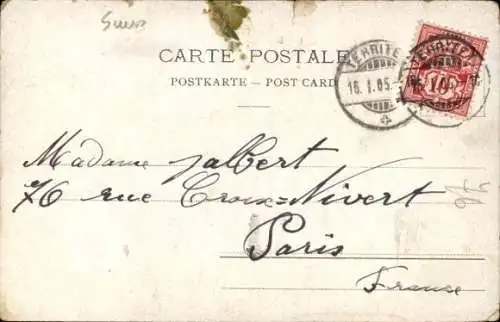 Suisse
CARTE POSTALE
POSTKARTE – POST CARD
TERRITET
16. I. 05.
TERRITET
10
Madame Jalbert
76 rue Croix=Nivert
Paris
France